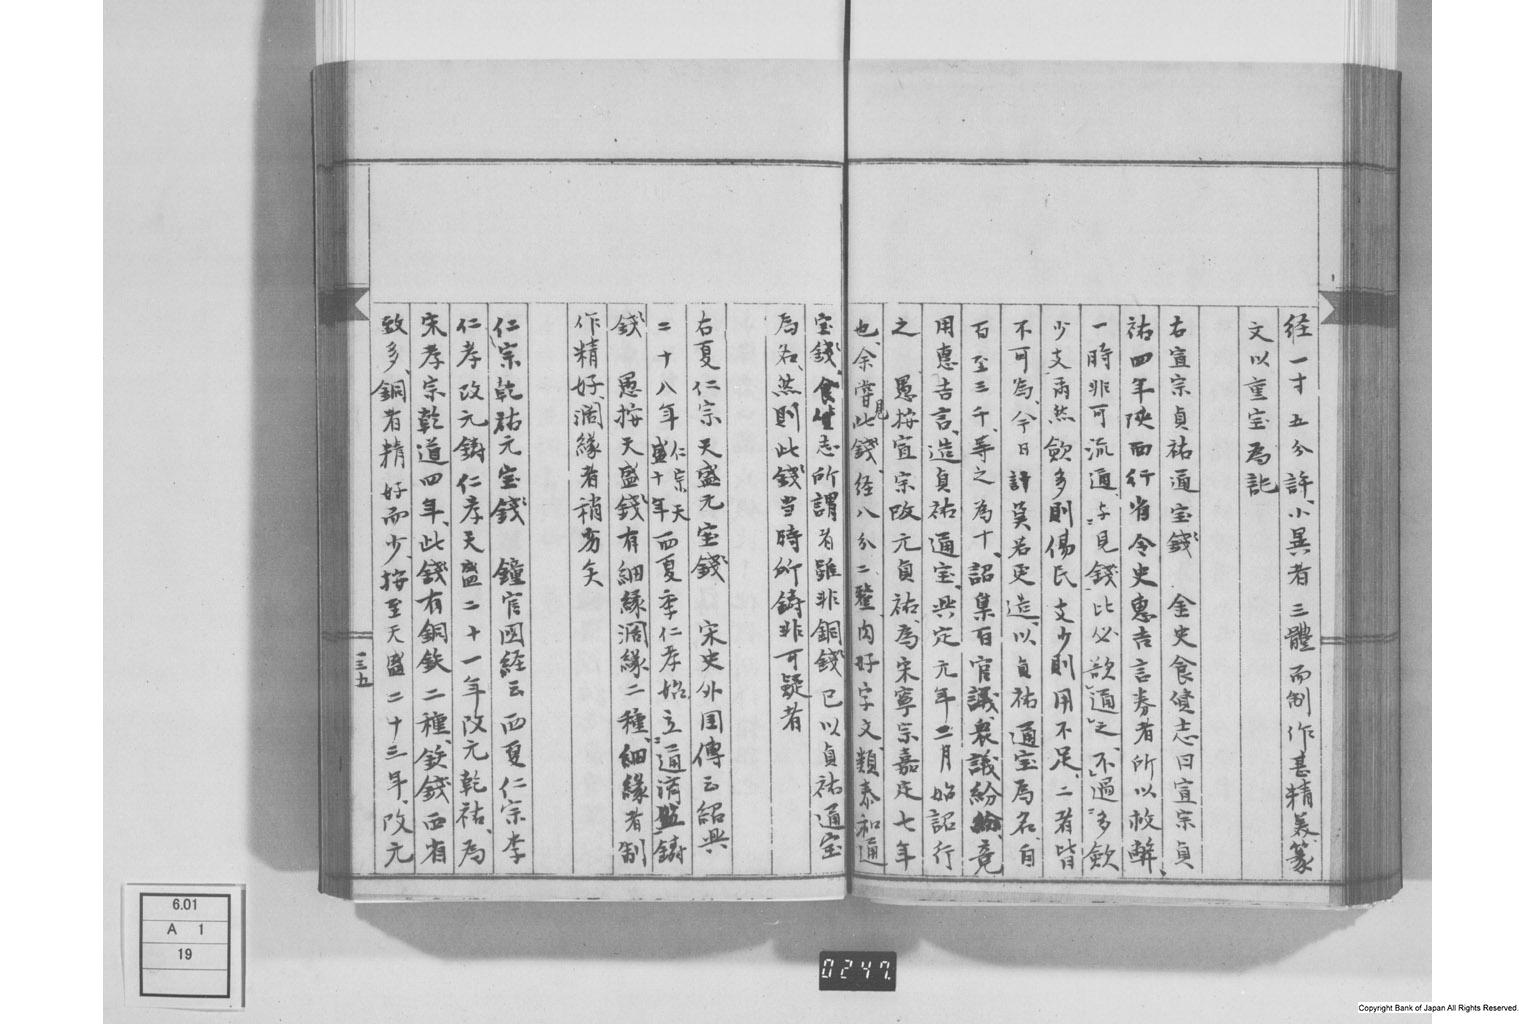 経一寸五分許、小異者三體而制作甚精美篆
文以重宝為訛
右宣宗貞祐通宝銭　金史食貨志曰宣宗貞
祐四年陝西行省令史惠吉言券者所以救弊、
一時非可流通、与見銭比必欲通之、不過多歛
少支而然歛多則傷民支少則用不足、二者皆
不可為、今日計莫若更造、以貞祐通宝為名、自
百至三千、等之為十、詔集百官議、衆議紛紛、竟
用惠吉言、造貞祐通宝、興定元年二月始詔行
之　愚按宣宗改元貞祐、為宋寧宗嘉定七年
也、余嘗見此銭、経八分二釐肉好字文、類泰和通
宝銭、食貨志所謂者雖非銅銭已以貞祐通宝
為名、然則此銭当時所鋳非可疑者
右夏仁宗天盛元宝銭　宋史外国傳云紹興
二十八年仁宗天盛十年西夏李仁孝始立通済監鋳
銭　愚按天盛銭有細縁濶縁二種、細縁者制
作精好、濶縁者稍劣矣
仁宗乾祐元宝銭　鐘官図経云西夏仁宗李
仁孝改元鋳仁孝天盛二十一年改元乾祐、為
宋孝宗乾道四年、此銭有銅鉄二種、鉄銭西省
致多、銅者精好而少、按至天盛二十三年、改元
一三五
6.01
A 1
19
0247.
Copyright Bank of Japan All Rights Reserved.